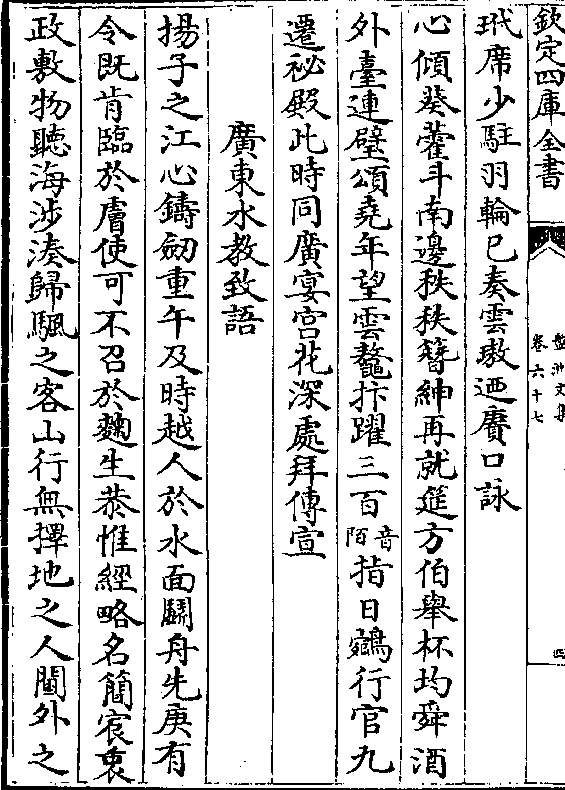 欽定四庫全書
盤洲文集
卷六十七
四
玳席少駐羽輪已奏雲璈廼賡口詠
心傾葵藿斗南邊秩秩簪紳再就筵方伯舉杯均舜酒
外臺連璧頌堯年望雲鼇抃躍三百音陌指日鵷行官九
遷祕殿此時同廣宴宫花深處拜傳宣
廣東水教致語
揚子之江心鑄劒重午及時越人於水面鬭舟先庚有
令既肯臨於膚使可不召於麴生恭惟經略名簡宸衷
政敷物聽海涉湊歸颿之客山行無擇地之人閫外之